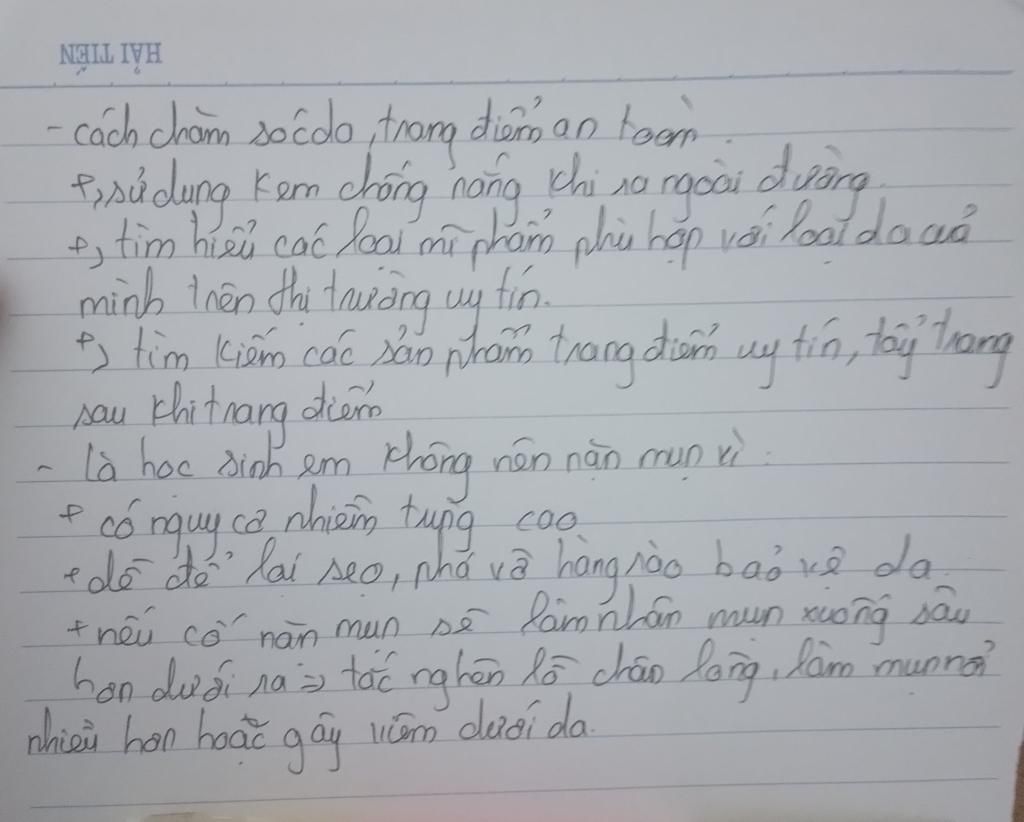 HẢI TIẾN
- cách chăm sócda, trang điểm an toàn.
+, sử dụng kem chống nắng khi ra ngoài đường.
+, tìm hiểu các loại mĩ phẩm phù hợp với loại da củả
mình trên thị trường uy tín.
+, tìm kiếm các sản phẩm trang điểm uy tín, tẩy trang
sau khi trang điểm
- là học sinh em không nên nặn mụn vì:
+ có nguy cơ nhiễm trùng cao
+ dễ để lại sẹo, phá vỡ hàng rào bảo vệ da.
+ nếu cố nặn mụn sẽ làm nhân mụn xuống sâu
hơn dưới ra => tắc nghẽn lỗ chân lông, làm mụn nổi
nhiều hơn hoặc gây viêm dưới da.